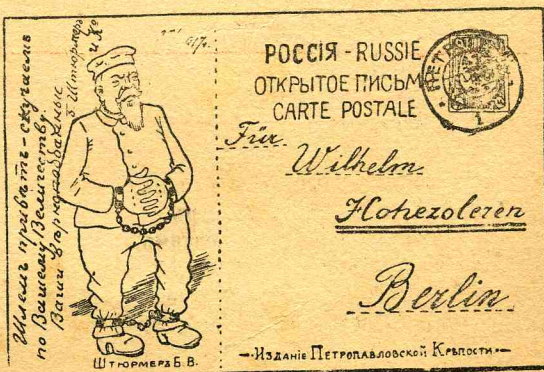 Шлемъ привѣтъ - скучаемъ
по Вашему Величеству.
Ваши вѣрноподданные
Штюрмеръ
и Ко
917г.
ШТЮРМЕРЪ Б. В.
РОССІЯ - RUSSIE
ОТКРЫТОЕ ПИСЬМО
CARTE POSTALE
1
Für
Wilhelm
Hohezoleren
Berlin
ИЗДАНІЕ ПЕТРОПАВЛОВСКОЙ КРѢПОСТИ